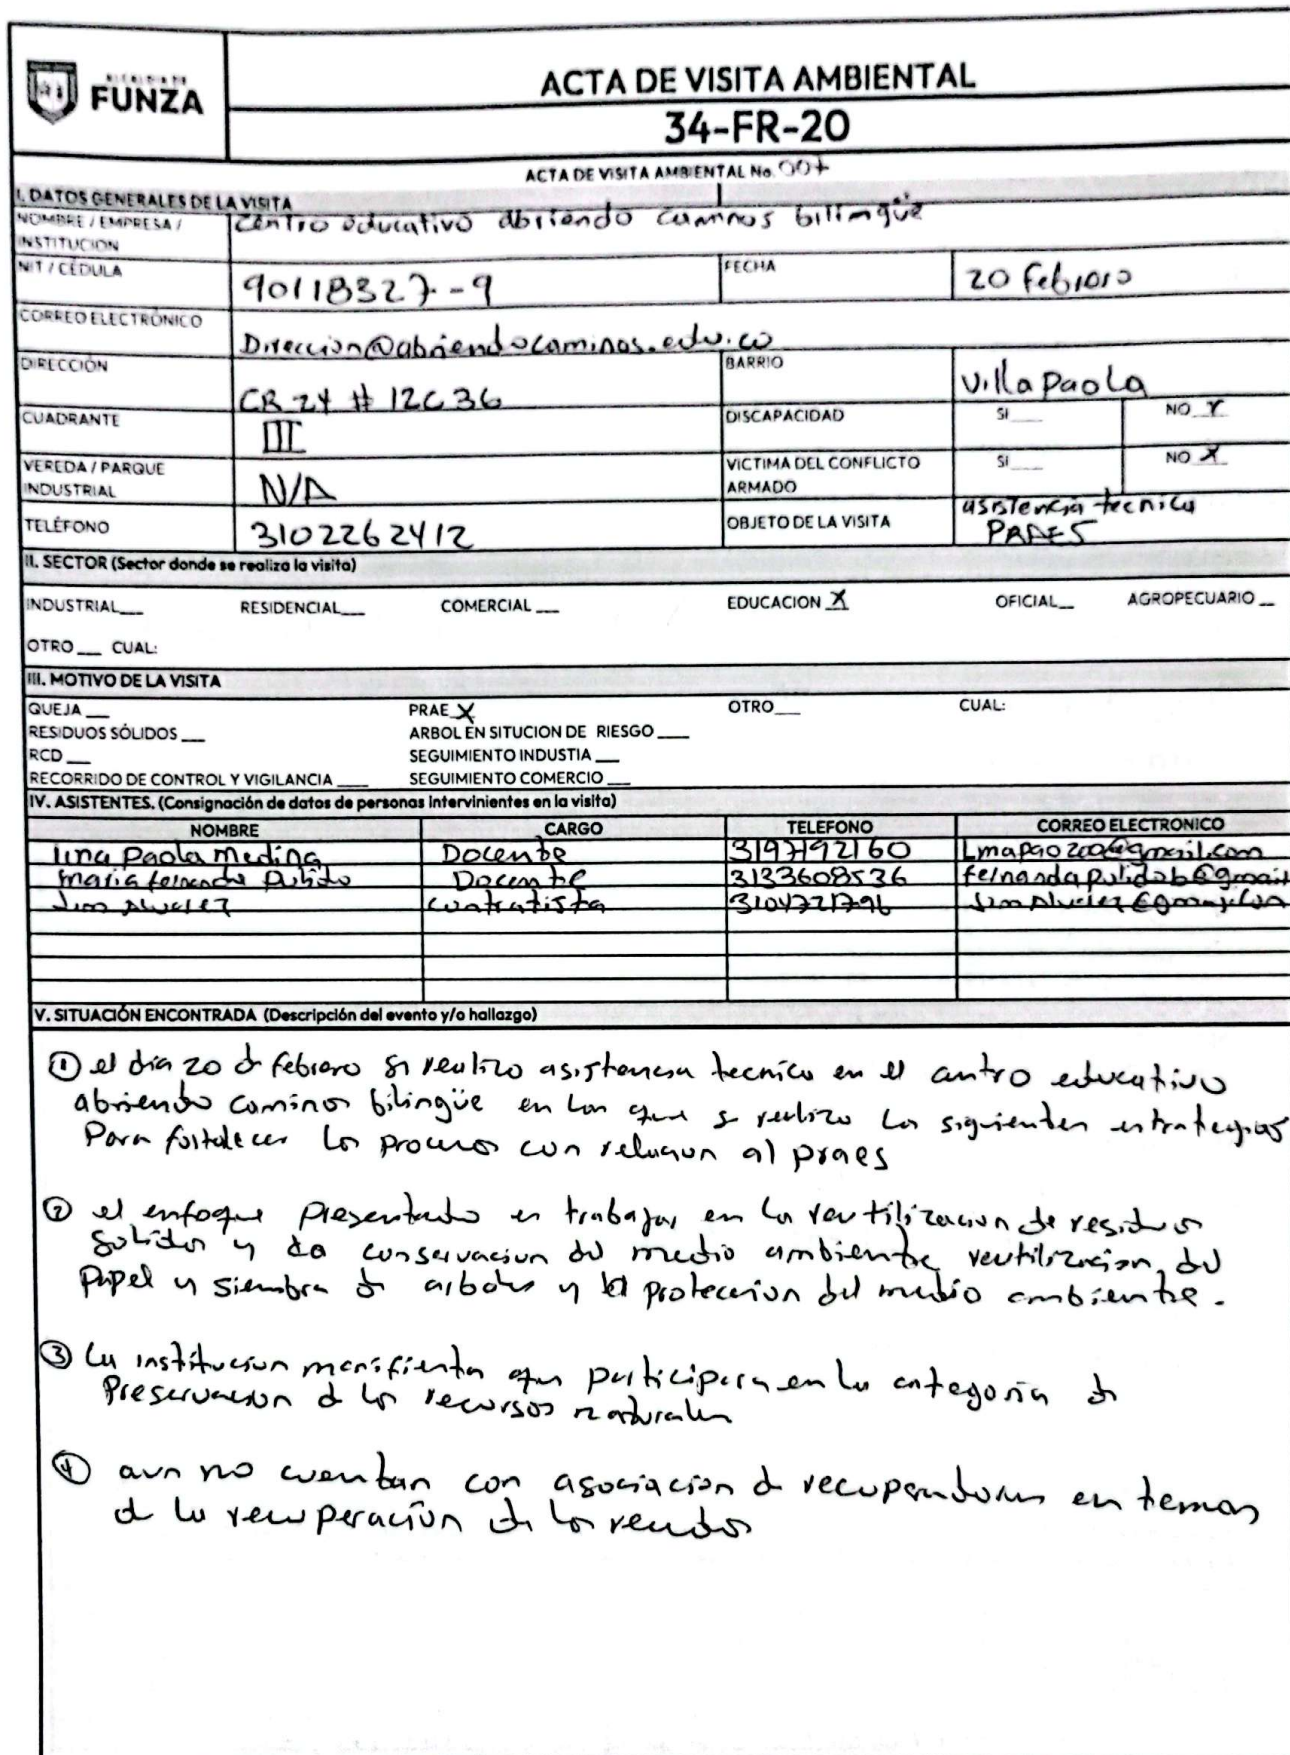 ALCALDIA DE
FUNZA
ACTA DE VISITA AMBIENTAL
34-FR-20
ACTA DE VISITA AMBIENTAL No. 007
I. DATOS GENERALES DE LA VISITA
NOMBRE / EMPRESA / INSTITUCION Centro educativo abriendo caminos bilingüe
NIT / CÉDULA 90118327-9 FECHA 20 Febrero
CORREO ELECTRÓNICO Direccion@abriendocaminos.edu.co
DIRECCIÓN CR 24 # 12C 36 BARRIO Villa Paola
CUADRANTE III DISCAPACIDAD SI___ NO X
VEREDA / PARQUE INDUSTRIAL N/A VICTIMA DEL CONFLICTO ARMADO SI___ NO X
TELÉFONO 3102262412 OBJETO DE LA VISITA asistencia tecnica PRAES
II. SECTOR (Sector donde se realiza la visita)
INDUSTRIAL___ RESIDENCIAL___ COMERCIAL ___ EDUCACION X OFICIAL__ AGROPECUARIO __
OTRO ___ CUAL:
III. MOTIVO DE LA VISITA
QUEJA __ PRAE X OTRO___ CUAL:
RESIDUOS SÓLIDOS ___ ARBOL EN SITUCION DE RIESGO ____
RCD ___ SEGUIMIENTO INDUSTIA ___
RECORRIDO DE CONTROL Y VIGILANCIA ____ SEGUIMIENTO COMERCIO ___
IV. ASISTENTES. (Consignación de datos de personas intervinientes en la visita)
NOMBRE CARGO TELEFONO CORREO ELECTRONICO
lina Paola Medina Docente 3197192160 Lmapao200@gmail.com
maria fernanda Pulido Docente 3133608536 fernandapulidob@gmail
Jim Alvarez contratista 3104721796
V. SITUACIÓN ENCONTRADA (Descripción del evento y/o hallazgo)
① el dia 20 de febrero se realizo asistencia tecnica en el centro educativo
abriendo caminos bilingüe en las que se realizo las siguientes estrategias
Para fortalecer los procesos con relacion al praes
② el enfoque presentado es trabajar en la reutilizacion de residuos
solidos y la conservacion del medio ambiente, reutilización del
Papel y siembra de arboles y la proteccion del medio ambiente.
③ La institucion manifiesta que participara en la categoria de
Preservacion de los recursos naturales
④ aun no cuentan con asociacion de recuperadores en temas
de la recuperación de los residuos